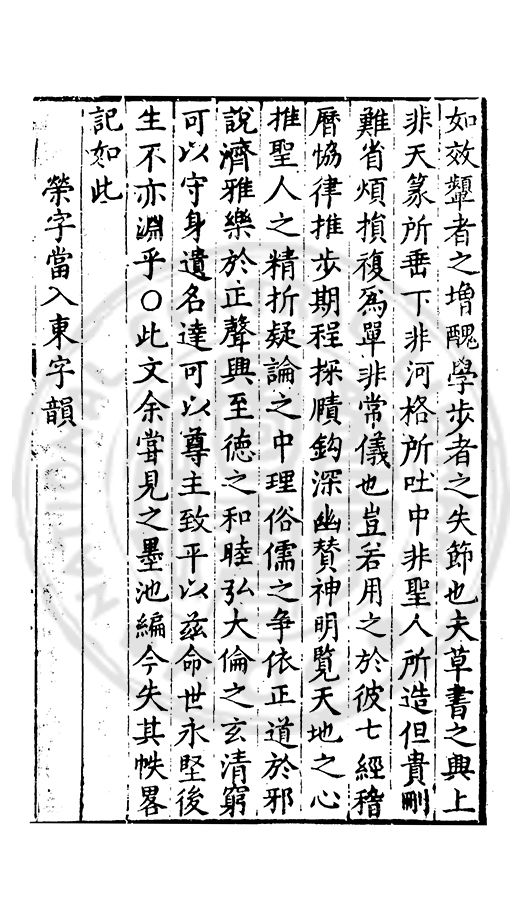 如效顰者之増醜學步者之失節也夫草書之興上
非天篆所垂下非河格所吐中非聖人所造但貴刪
難省煩損復爲單非常儀也豈若用之於彼七經稽
曆恊律推步期程探賾鈎深幽贊神明覽天地之心
推聖人之精折疑論之中理俗儒之争依正道於邪
說濟雅樂於正聲興至德之和睦弘大倫之玄清窮
可以守身遺名達可以尊主致平以兹命世永堅後
生不亦淵乎〇此文余甞見之墨池編今失其帙畧
記如此
榮字當入東字韻